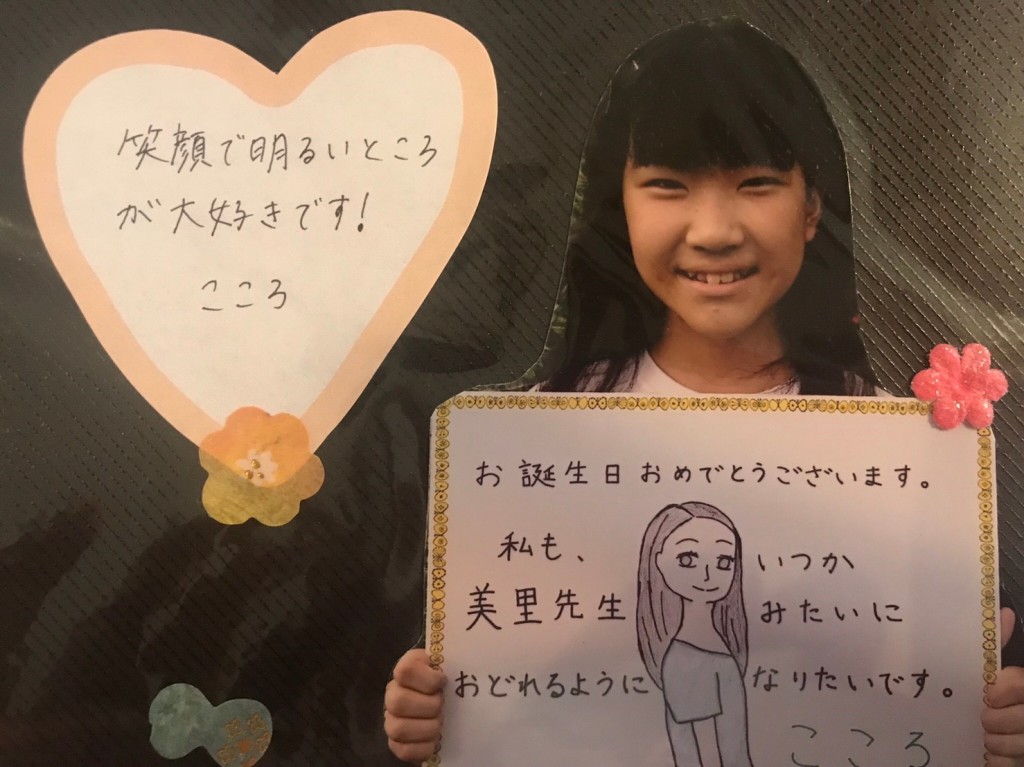 笑顔で明るいところ
が大好きです!
こころ
お誕生日おめでとうございます。
私も、いつか
美里先生みたいに
おどれるようになりたいです。
こころ